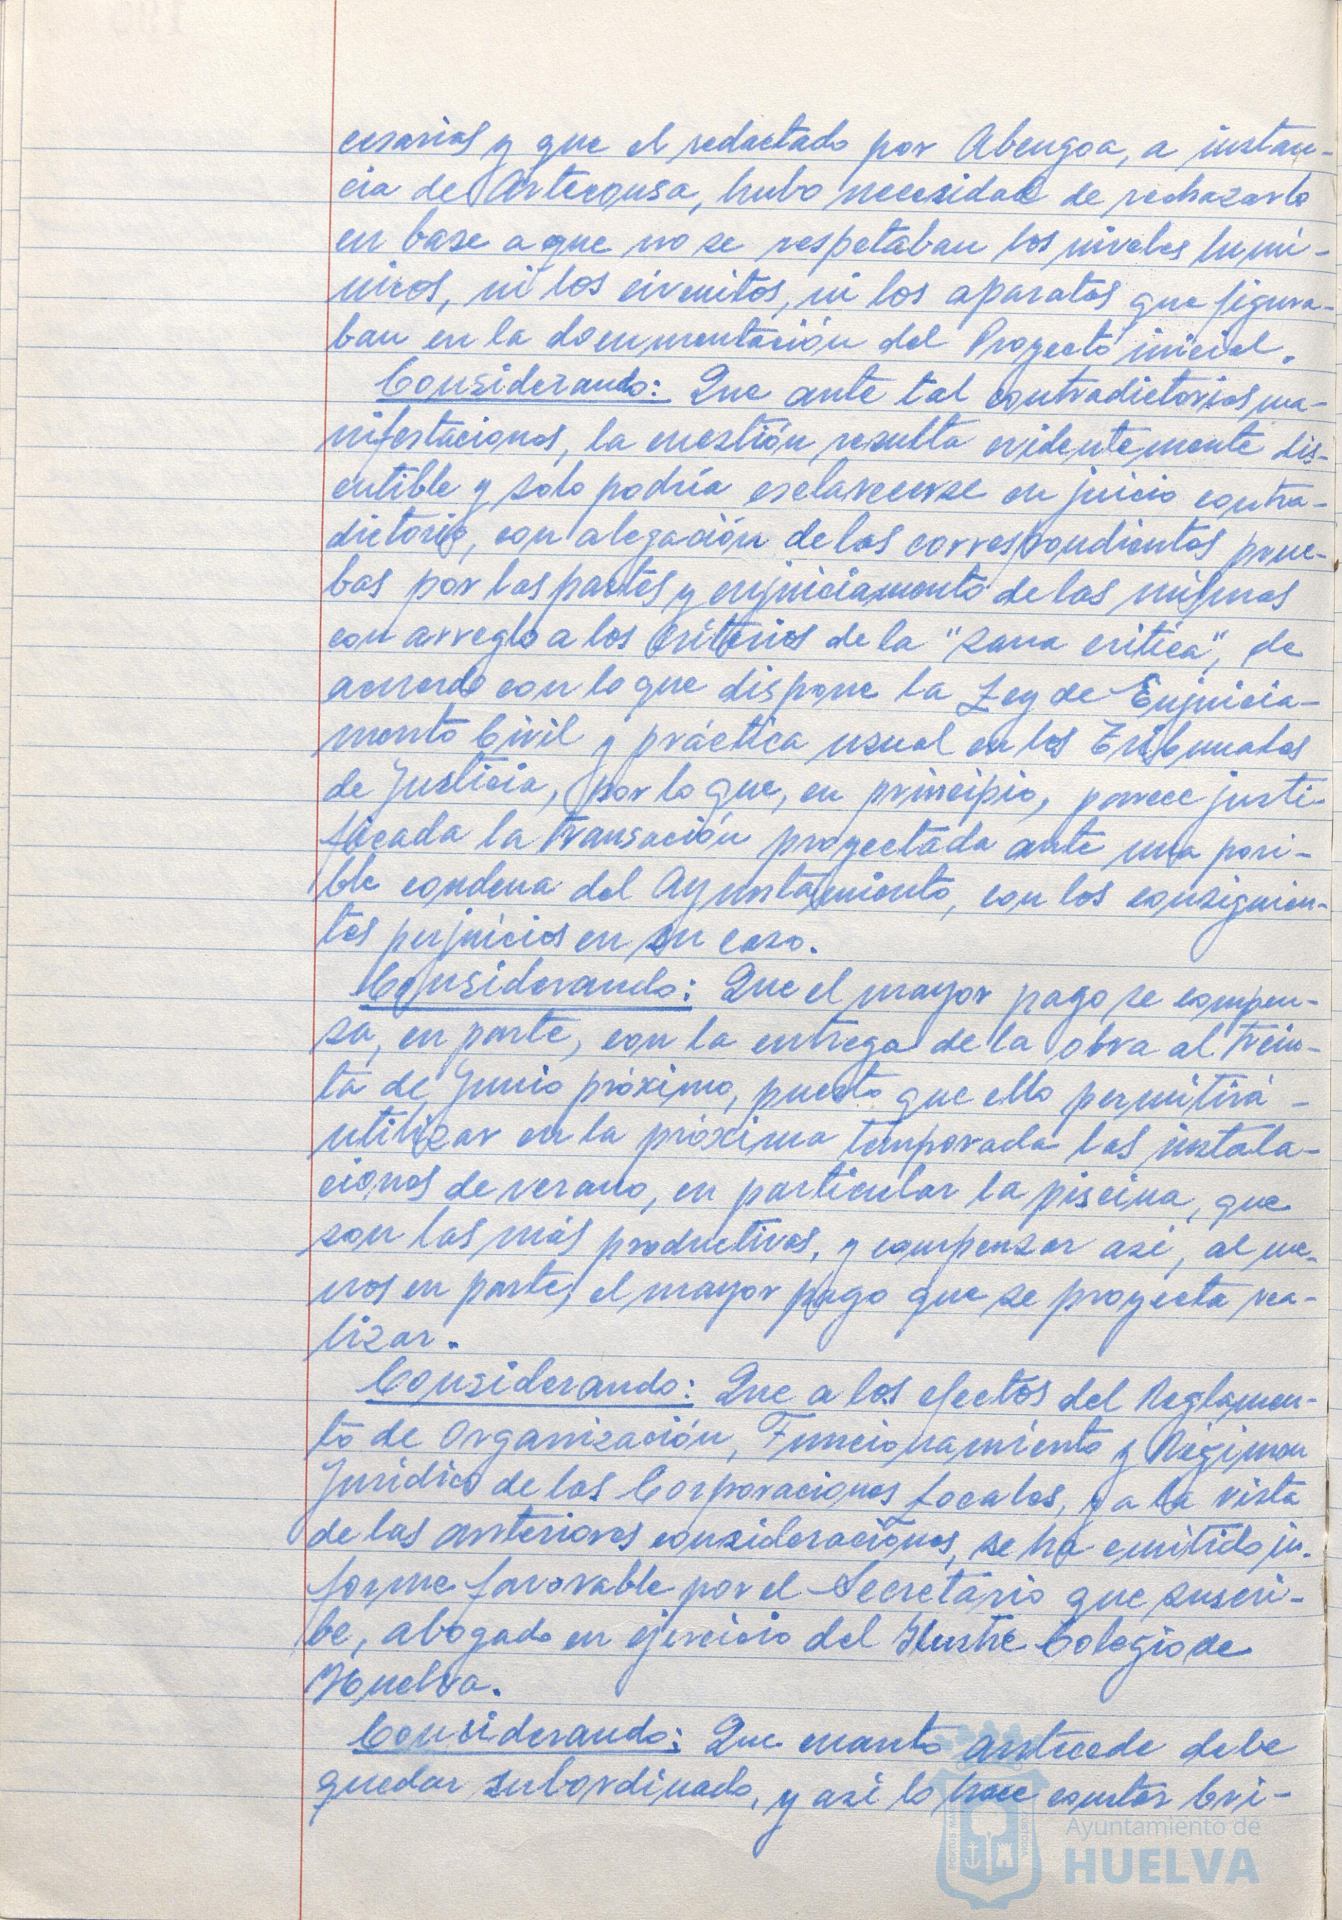 cesarios y que el redactado por Abengoa, a instan-
cia de Artecqusa, hubo necesidad de rechazarlo
en base a que no se respetaban los niveles lumí-
nicos, ni los circuitos, ni los aparatos que figura-
ban en la documentación del Proyecto inicial.
Considerando: Que ante tal contradictorias ma-
nifestaciones, la cuestión resulta evidentemente dis-
cutible y solo podría esclarecerse en juicio contra-
dictorio, con alegación de las correspondientes prue-
bas por las partes y enjuiciamento de las mismas
con arreglo a los criterios de la "sana crítica", de
acuerdo con lo que dispone la Ley de Enjuicia-
mento Civil y práctica usual en los Tribunales
de Justicia, por lo que, en principio, parece justi-
ficada la transación proyectada ante una posi-
ble condena del Ayuntamiento, con los consiguien-
tes perjuicios en su caso.
Considerando: Que el mayor pago se compen-
sa, en parte, con la entrega de la obra al trein-
ta de Junio próximo, puesto que ello permitirá -
utilizar en la próxima temporada las instala-
ciones de verano, en particular la piscina, que
son las más productivas, y compensar así, al me-
nos en parte, el mayor pago que se proyecta rea-
lizar.
Considerando: Que a los efectos del Reglamen-
to de Organización, Funcionamiento y Régimen
Jurídico de las Corporaciones Locales, y a la vista
de las anteriores consideraciones, se ha emitido in-
forme favorable por el Secretario que suscri-
be, abogado en ejercicio del Ilustre Colegio de
Huelva.
Considerando: Que cuanto antecede debe
quedar subordinado, y así lo hace constar bri-
Ayuntamiento de
HUELVA